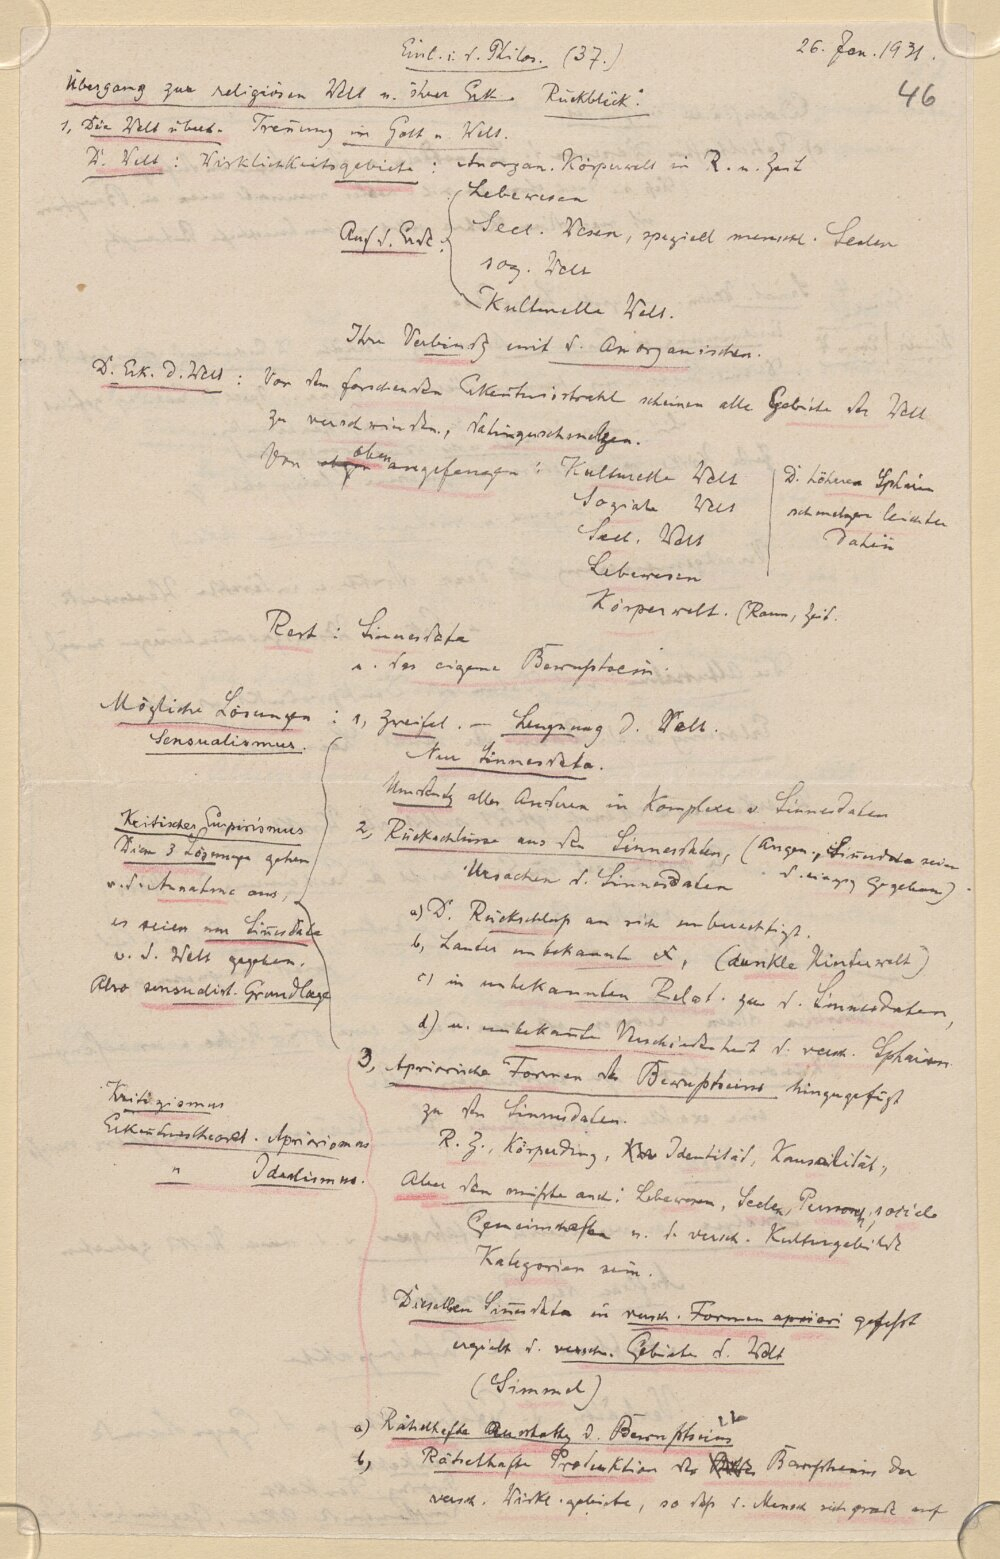 Einl. i. d. Philos. (37.)
26. Jan. 1931.
46
Übergang zur religiösen Welt u. ihrer Erk. Rückblick:
1, Die Welt überh. Trennung in Gott u. Welt.
D. Welt: Wirklichkeitsgebiete: Anorgan. Körperwelt in R. u. Zeit
Auf d. Erde:
Lebewesen
Seel. Wesen, speziell menschl. Seelen
soz. Welt
Kulturelle Welt.
Ihre Verbindg mit d. Anorganischen.
D. Erk. d. Welt: Vor dem forschenden Erkenntnisstrahl scheinen alle Gebiete der Welt
zu verschwinden, dahinzuschmelzen.
Von oben angefangen: Kulturelle Welt
Soziale Welt
Seel. Welt
Lebewesen
Körperwelt. (Raum, Zeit.
D. höheren Sphären
schmelzen leichter
dahin
Rest: Sinnesdata
u. das eigene Bewußtsein.
Mögliche Lösungen: 1, Zweifel. – Leugnung d. Welt.
Sensualismus.
Nur Sinnesdata.
Umdeutg alles Anderen in Komplexe v. Sinnesdaten
2, Rückschlüsse aus den Sinnesdaten, (Angen., Sinnesdata seien
d. einzig Gegebene).
Ursachen d. Sinnesdaten
a) D. Rückschluß an sich unberechtigt.
b, Lauter unbekannte x, (dunkle Hinterwelt)
c) in unbekannten Relat. zu d. Sinnesdaten,
d) u. unbekannte Verschiedenheit d. versch. Sphären
Kritischer Empirismus
Diese 3 Lösungen gehen
v. d. Annahme aus,
es seien nur Sinnesdata
v. d. Welt gegeben.
Also sensualist. Grundlage
3, Apriorische Formen des Bewußtseins hinzugefügt
zu den Sinnesdaten.
R. Z., Körperding, Identität, Kausalität,
Kritizismus
Erkenntnistheoret. Apriorismus
" Idealismus.
Aber dann müßten auch: Lebewesen, Seelen, Personen, soziale
Gemeinschaften u. d. versch. Kulturgebilde
Kategorien sein.
Dieselben Sinnesdata in versch. Formen apriori gefaßt
ergiebt d. versch. Gebiete d. Welt
(Simmel)
a) Rätselhafte Ausstattg d. Bewußtseins
b, Rätselhafte Produktion des Bewußtseins der
versch. Wirkl.gebiete, so daß d. Mensch sich grade auf